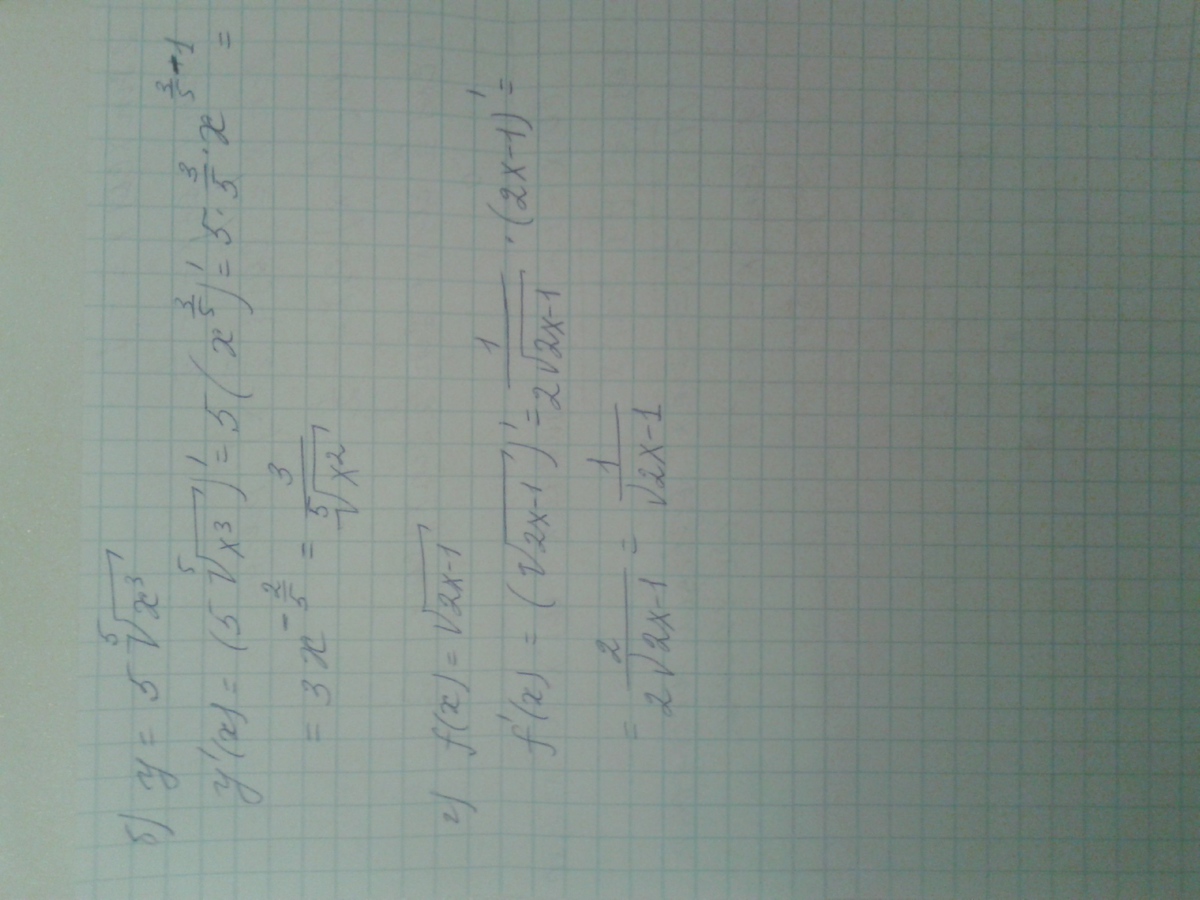 б) y = 5 ⁵√x³
y'(x) = (5 ⁵√x³)' = 5(x^(3/5))' = 5 · 3/5 · x^(3/5 - 1) =
= 3x^(-2/5) = 3/⁵√x²
г) f(x) = √(2x-1)
f'(x) = (√(2x-1))' = 1/(2√(2x-1)) · (2x-1)' =
= 2/(2√(2x-1)) = 1/√(2x-1)